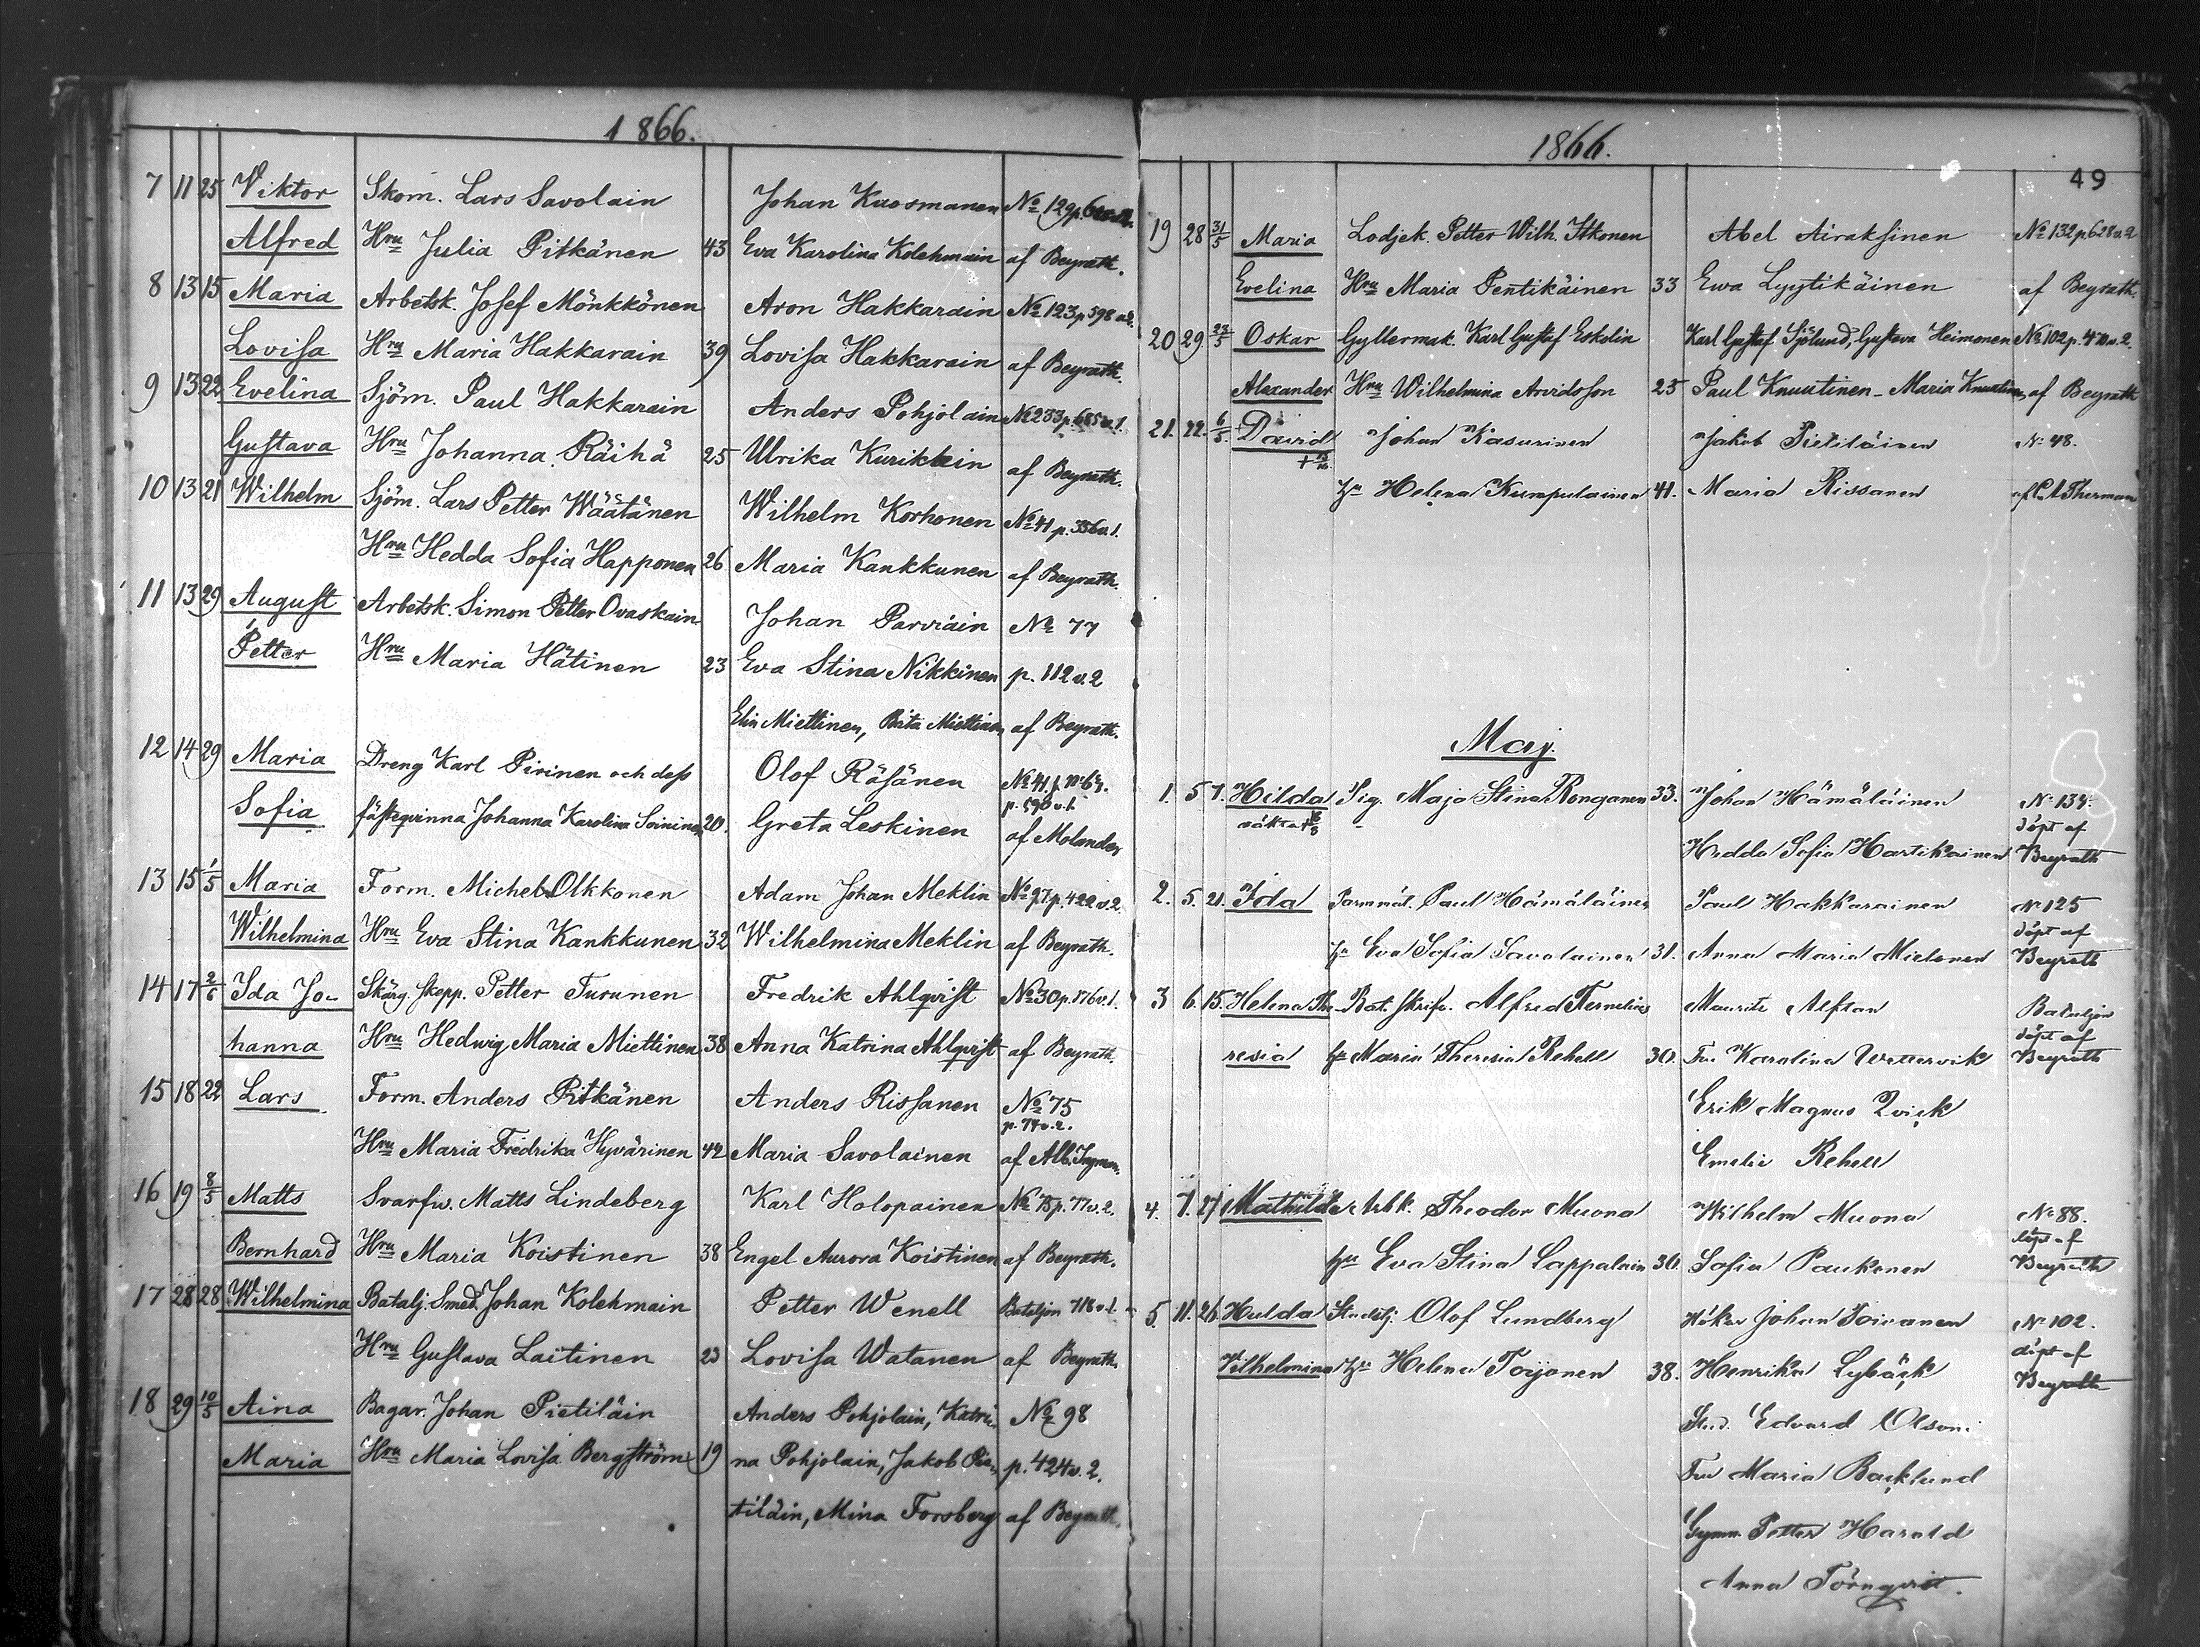 1866.
7 11 25 Viktor Skom. Lars Savolain Johan Kuosmanen No 129 p.
Alfred Hru Julia Pitkänen 43 Eva Karolina Kolehmain af Beyrath.
8 13 15 Maria Arbetsk. Josef Mönkkönen Aron Hakkarain No 123 p 598 v.2.
Lovisa Hru Maria Hakkarain 39 Lovisa Hakkarain af Beyrath.
9 13 22 Evelina Sjöm. Paul Hakkarain Anders Pohjolain No 233 p. 665 v.1.
Gustava Hru Johanna Räihä 25 Ulrika Kurikkin af Beyrath.
10 13 21 Wilhelm Sjöm. Lars Petter Wäätänen Wilhelm Korhonen No 41 p. 336 v.1.
Hru Hedda Sofia Happonen 26 Maria Kankkunen af Beyrath.
11 13 29 August Arbetsk. Simon Petter Ovaskain Johan Parviain No 77
Petter Hru Maria Hätinen 23 Eva Stina Nikkinen p. 112 v.2
Elin Miettinen, Brita Miettinen af Beyrath.
12 14 29 Maria Dreng Karl Pirinen och dess Olof Räsänen No 41
p. 590 v.1.
Sofia fästeqvinna Johanna Karolina Soininen 20. Greta Leskinen af Molander
13 15 1/5 Maria Form. Michel Olkkonen Adam Johan Meklin No 97 p. 422 v.2
Wilhelmina Hru Eva Stina Kankkunen 32 Wilhelmina Meklin af Beyrath.
14 17 2/6 Ida Jo- Skärg. skepp. Petter Turunen Fredrik Ahlqvist No 30 p. 176 v.1.
hanna Hru Hedwig Maria Miettinen 38 Anna Katrina Ahlqvist af Beyrath.
15 18 22 Lars Form. Anders Pitkänen Anders Rissanen No 75
p. 77 v.2.
Hru Maria Fredrika Hyvärinen 42 Maria Savolainen af Alb. Ingman.
16 19 8/5 Matts Svarfv. Matts Lindeberg Karl Holopainen No 75 p. 77 v.2.
Bernhard Hru Maria Koistinen 38 Engel Aurora Koistinen af Beyrath.
17 28 28 Wilhelmina Batalj. Smed. Johan Kolehmain Petter Wenell Bataljon 718 v.1.
Hru Gustava Laitinen 23 Lovisa Watanen af Beyrath.
18 29 10/5 Aina Bagar. Johan Pietiläin Anders Pohjolain, Katri- No 98
Maria Hru Maria Lovisa Bergström 19 na Pohjolain, Jakob Pie- p. 424 v. 2.
tiläin, Mina Forsberg af Beyrath.
1866.
49
19 28 31/5 Maria Lodjek. Petter Wilh. Itkonen Abel Airaksinen No 132 p 628 v.2
Evelina Hru Maria Pentikäinen 33 Ewa Lyytikäinen af Beyrath.
20 29 23/5 Oskar Gyllermak. Karl Gustaf Eskolin Karl Gustaf Sjölund, Gustava Heimonen No 102 p. v.2.
Alexander Hru Wilhelmina Arvidsson 25 Paul Knuutinen - Maria Knuutinen af Beyrath
21. 22. 6/5. David Johan Kasurinen Jakob Pietiläinen No 48.
Hu Helena Kumpulainen 41. Maria Rissanen af C. A. Therman
Maj.
1. 5 7. Hilda Pig. Maja Stina Ronganen 33. Johan Hämäläinen No 134.
oäkta döpt af
Hedda Sofia Hartikainen Beyrath
2. 5. 21. Ida Paul Hämäläinen Paul Hakkarainen No 125
döpt af
Hu Eva Sofia Savolainen 31. Anna Maria Mielonen Beyrath
3 6. 15. Helena The- Bat. skrifv. Alfred Fernelius Maurits Alfsan Bataljon
döpt af
resia Hu Maria Theresia Rehell 30. Fru Karolina Wettervik Beyrath
Erik Magnus Qvick
Emelie Rehell
4. 7. 27 Mathilda Arbk. Theodor Muona Wilhelm Muona No 88.
döpt af
Hu Eva Stina Lappalain 30. Sofia Paukonen Beyrath
5. 11. 26 Hulda Stadstj. Olof Lundberg Hökar Johan Toivanen No 102.
döpt af
Vilhelmina Hu Helena Toijonen 38. Henrika Lybäck Beyrath
Stud. Edvard Olsoni
Fru Maria Backlund
Gymn. Petter Harald
Anna Törnqvist.